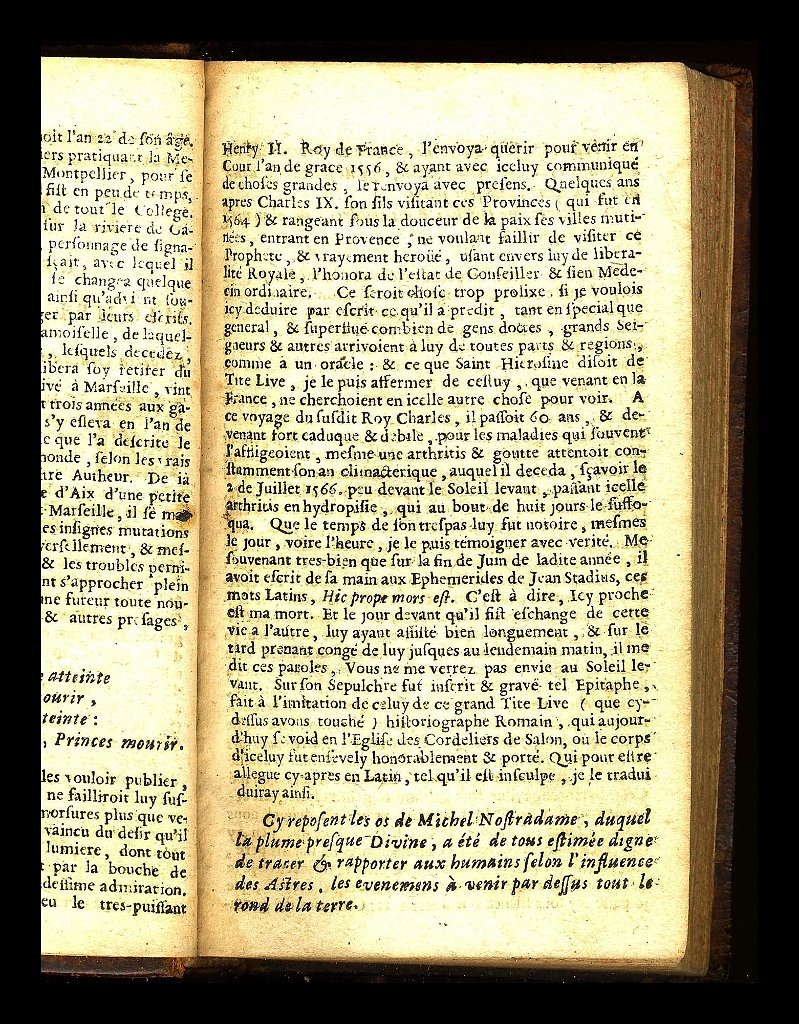 oit l'an 22 de ſon âge.
ers pratiquant la Me-
Montpellier, pour ſe
fiſt en peu de temps,
de tout le College.
ſur la riviere de Ga-
perſonnage de ſigna-
ſçait, avec lequel il
ſe changea quelque
ainſi qu'advint ſou-
er par leurs eſcrits.
amoiſelle, de laquel-
, leſquels decedez,
ibera ſoy retirer du
ivé à Marſeille, vint
trois années aux ga-
s'y eſleva en l'an de
e que l'a deſcrite le
nonde, ſelon les vrais
re Autheur. De là
e d'Aix d'une petite
Marſeille, il ſe
es inſignes mutations
verſellement, & meſ-
& les troubles perni-
nt s'approcher plein
ne fureur toute nou-
& autres preſages,
atteinte
ourir,
teinte:
, Princes mourir.
les vouloir publier,
ne failliroit luy ſuſ-
morſures plus que ve-
vaincu du deſir qu'il
lumiere, dont tout
par la bouche de
deſſime admiration.
eu le tres-puiſſant
Henry II. Roy de France, l'envoya querir pour venir en
Cour l'an de grace 1556, & ayant avec iceluy communiqué
de choſes grandes, le renvoya avec preſens. Quelques ans
apres Charles IX. ſon fils viſitant ces Provinces ( qui fut en
1564 ) & rangeant ſous la douceur de la paix ſes villes muti-
nées, entrant en Provence, ne voulant faillir de viſiter ce
Prophete, & vrayement heroüé, uſant envers luy de libera-
lité Royale, l'honora de l'eſtat de Conſeiller & ſien Mede-
cin ordinaire. Ce ſeroit choſe trop prolixe, ſi je voulois
icy deduire par eſcrit ce qu'il a predit, tant en ſpecial que
general, & ſuperflué combien de gens doctes, grands Sei-
gneurs & autres arrivoient à luy de toutes parts & regions,
comme à un oracle: & ce que Saint Hieroſme diſoit de
Tite Live, je le puis affermer de ceſtuy, que venant en la
France, ne cherchoient en icelle autre choſe pour voir. A
ce voyage du ſuſdit Roy Charles, il paſſoit 60 ans, & de-
venant fort caduque & debile, pour les maladies qui ſouvent
l'affligeoient, meſme une arthritis & goutte attentoit con-
ſtamment ſon an climacterique, auquel il deceda, ſçavoir le
2 de Juillet 1566. peu devant le Soleil levant, paſſant icelle
arthritis en hydropiſie, qui au bout de huit jours le ſuffo-
qua. Que le temps de ſon treſpas luy fut notoire, meſmes
le jour, voire l'heure, je le puis témoigner avec verité. Me
ſouvenant tres-bien que ſur la fin de Juin de ladite année, il
avoit eſcrit de ſa main aux Ephemerides de Jean Stadius, ces
mots Latins, Hic prope mors eſt. C'eſt à dire, Icy proche
eſt ma mort. Et le jour devant qu'il fiſt eſchange de cette
vie a l'autre, luy ayant aſſiſté bien longuement, & ſur le
tard prenant congé de luy juſques au lendemain matin, il me
dit ces paroles, Vous ne me verrez pas envie au Soleil le-
vant. Sur ſon Sepulchre fut inſcrit & gravé tel Epitaphe,
fait à l'imitation de celuy de ce grand Tite Live ( que cy-
deſſus avons touché ) hiſtoriographe Romain, qui aujour-
d'huy ſe void en l'Egliſe des Cordeliers de Salon, ou le corps
d'iceluy fut enſevely honorablement & porté. Qui pour eſtre
allegue cy-apres en Latin, tel qu'il eſt inſculpe, je le tradui
duiray ainſi.
Cy repoſent les os de Michel Noſtradame, duquel
la plume preſque Divine, a été de tous eſtimée digne
de tracer & rapporter aux humains ſelon l'influence
des Aſtres, les evenemens à venir par deſſus tout le
rond de la terre.